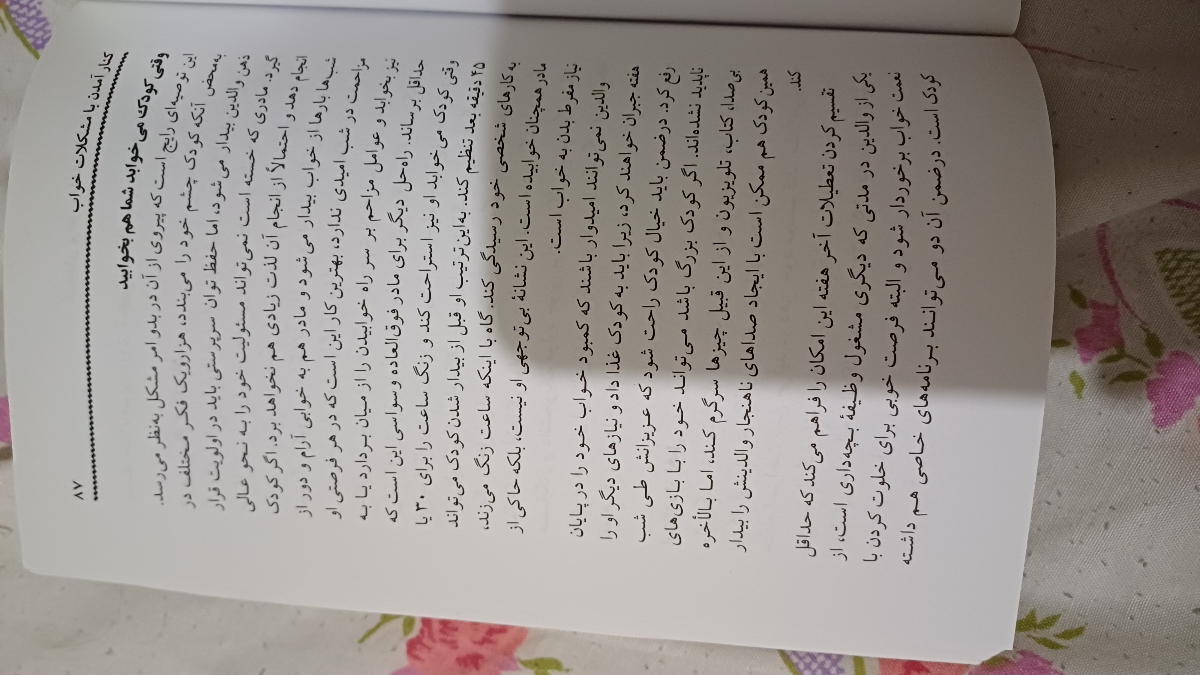 کنار آمدن با مشکلات خواب ۸۷
وقتی کودک می‌خوابد شما هم بخوابید
این توصیه‌ای رایج است که پیروی از آن در بدو امر مشکل به‌نظر می‌رسد.
به‌محض آنکه کودک چشم خود را می‌بندد، هزارویک فکر مختلف در
ذهن والدین بیدار می‌شود، اما حفظ توان سرپرستی باید در اولویت قرار
گیرد. مادری که خسته است نمی‌تواند مسئولیت خود را به نحو عالی
انجام دهد و احتمالاً از انجام آن لذت زیادی هم نخواهد برد. اگر کودک
شب‌ها بارها از خواب بیدار می‌شود و مادر هم به خوابی آرام و دور از
مزاحمت در شب امیدی ندارد، بهترین کار این است که در هر فرصتی او
نیز بخوابد و عوامل مزاحم بر سر راه خوابیدن را از میان بردارد یا به
حداقل برساند. راه‌حل دیگر برای مادر فوق‌العاده وسواسی این است که
وقتی کودک می‌خوابد او نیز استراحت کند و زنگ ساعت را برای ۳۰ یا
۴۵ دقیقه بعد تنظیم کند. به‌این‌ترتیب او قبل از بیدار شدن کودک می‌تواند
به کارهای شخصی خود رسیدگی کند. گاه با اینکه ساعت زنگ می‌زند،
مادر همچنان خوابیده است. این نشانهٔ بی‌توجهی او نیست، بلکه حاکی از
نیاز مفرط بدن به خواب است.
والدین نمی‌توانند امیدوار باشند که کمبود خواب خود را در پایان
هفته جبران خواهند کرد، زیرا باید به کودک غذا داد و نیازهای دیگر او را
رفع کرد. درضمن باید خیال کودک راحت شود که عزیزانش طی شب
ناپدید نشده‌اند. اگر کودک بزرگ باشد می‌تواند خود را با بازی‌های
بی‌صدا، کتاب، تلویزیون و از این قبیل چیزها سرگرم کند، اما بالأخره
همین کودک هم ممکن است با ایجاد صداهای ناهنجار والدینش را بیدار
کند.
تقسیم کردن تعطیلات آخر هفته این امکان را فراهم می‌کند که حداقل
یکی از والدین در مدتی که دیگری مشغول وظیفهٔ بچه‌داری است، از
نعمت خواب برخوردار شود و البته فرصت خوبی برای خلوت کردن با
کودک است. درضمن آن دو می‌توانند برنامه‌های خاصی هم داشته